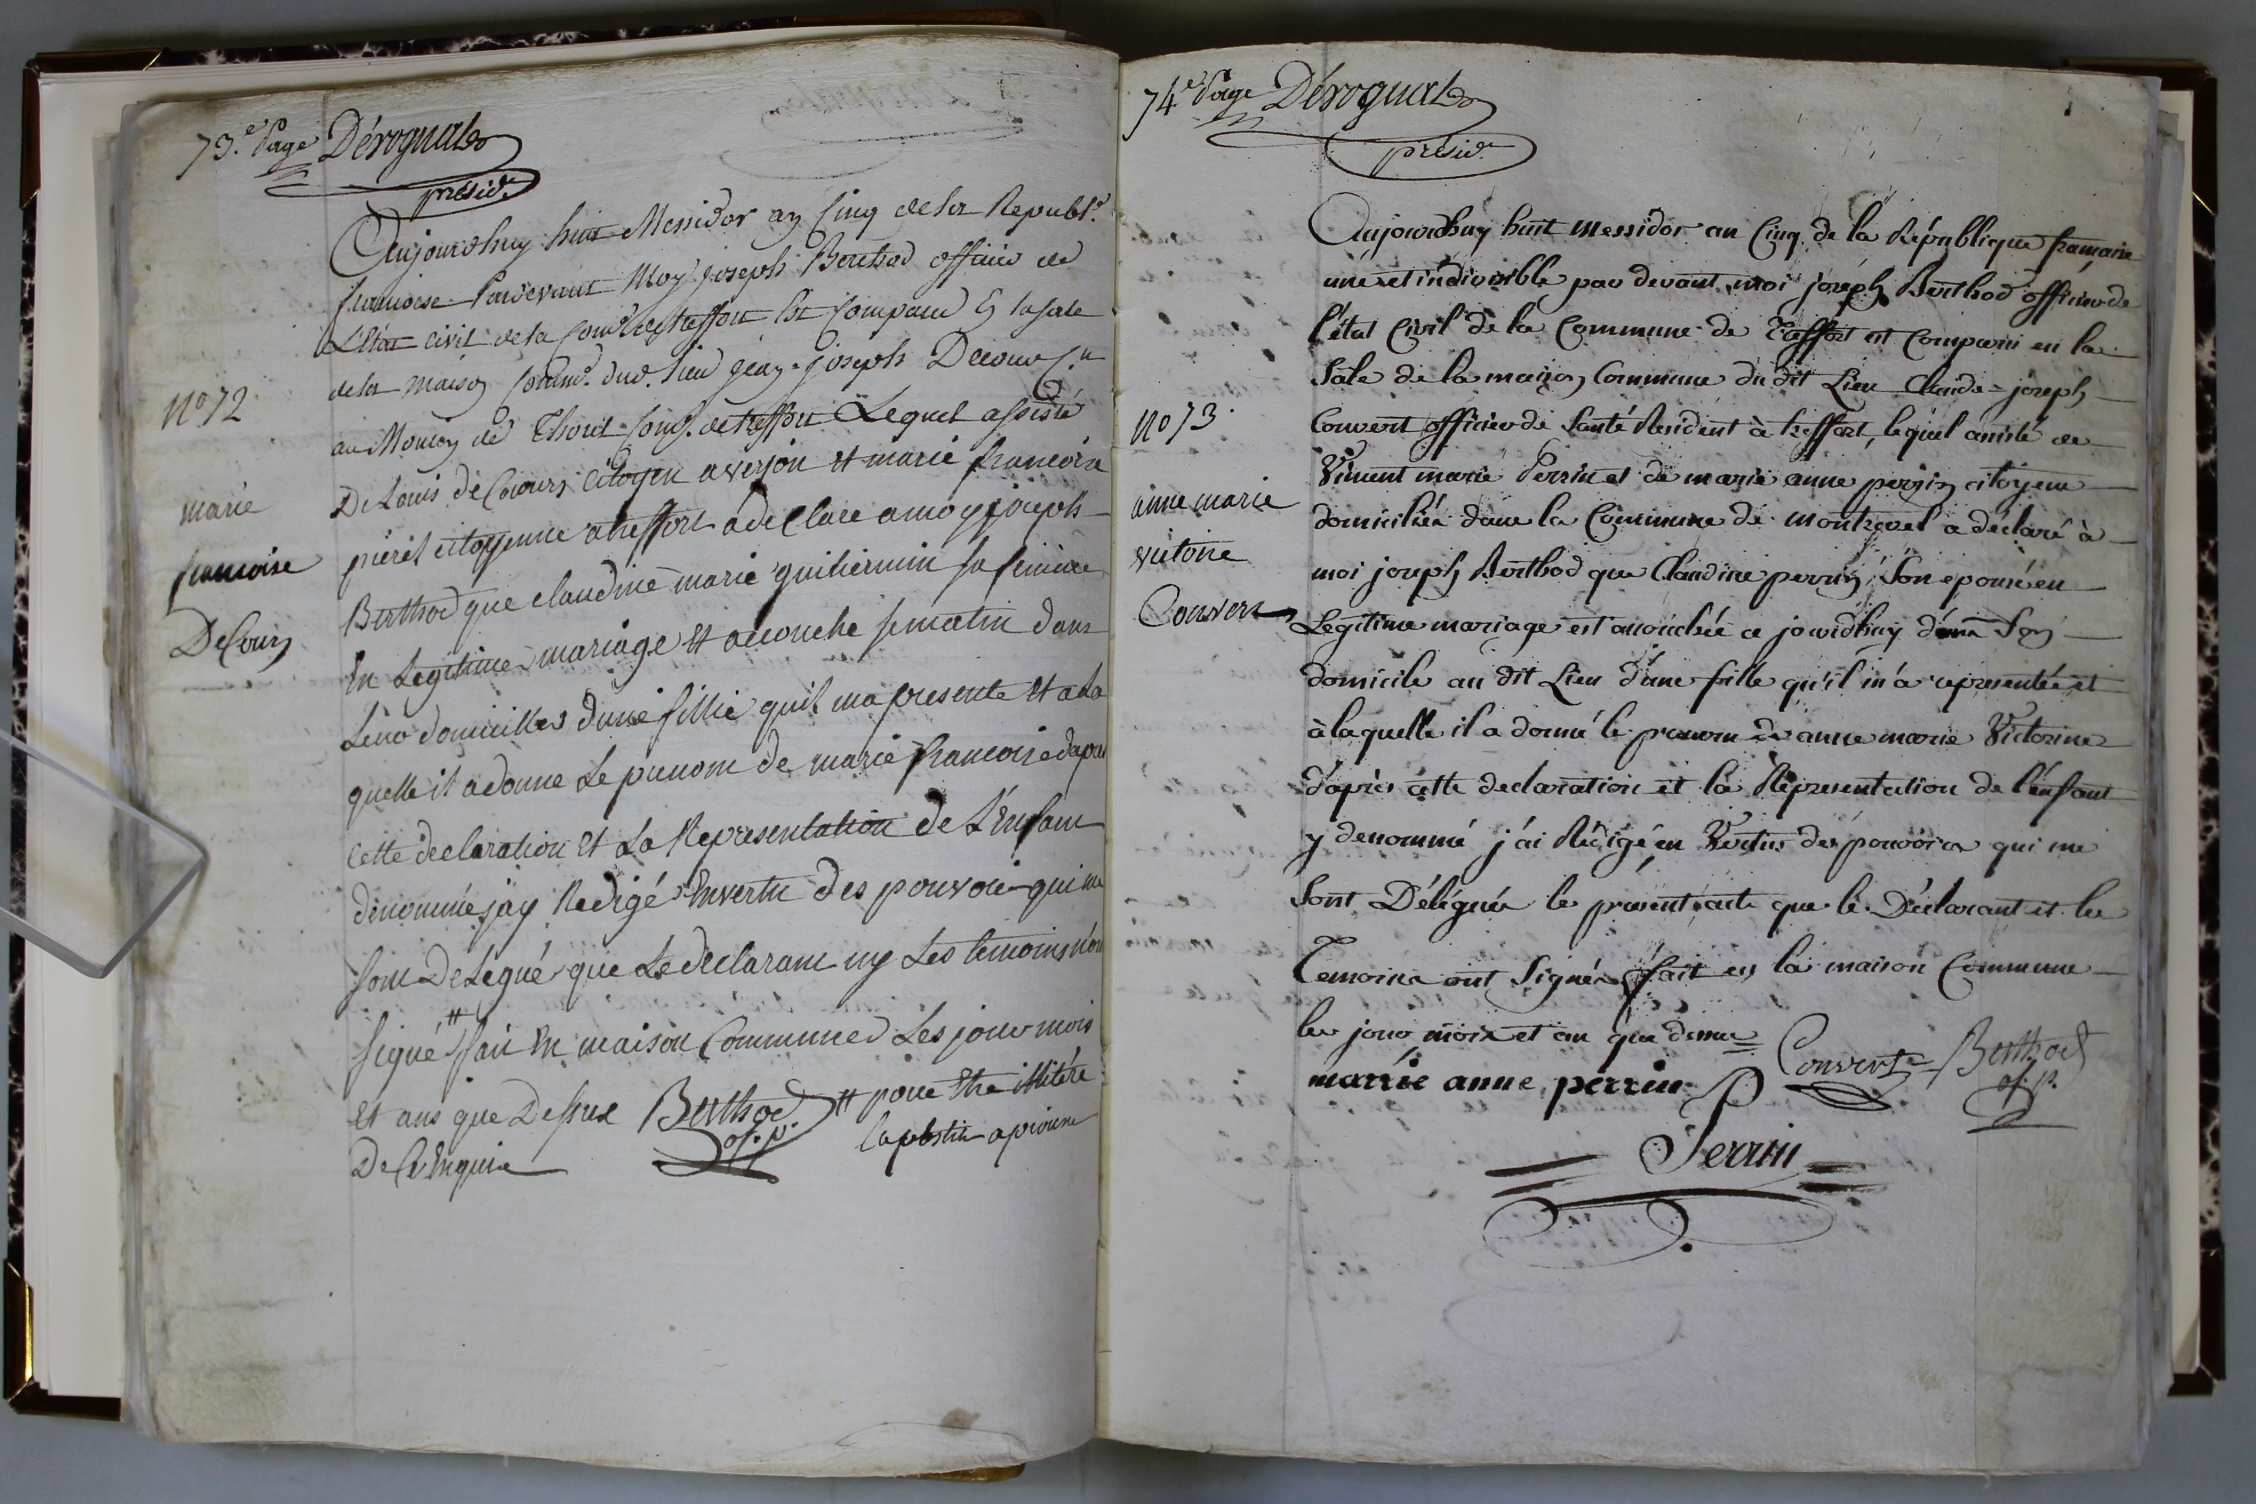 73.e Page Dérognat
présid.
Aujourdhuy huit Messidor an cinq de la Republ.e
francoise Pardevant Moy joseph Berthod officier de
L'Etat civil de la com.e de treffort Est comparu En la sale
de la maison comm.e dud. lieu jean-joseph Decour C.n
au Moncey de Thoirit com.e de treffort Lequel assisté
De Louis de Cours citoyen a verjon et marie francoise
citoyenne a treffort a declare a moy joseph
Berthod que claudine marie guillermin sa femme
En Legitime mariage Et acouche se matin dans
Leur domicilles dune fillie quil ma presente Et a La
quelle il a donne Le prenom de marie francoise dapres
cette declaration Et La Representation de L'Enfant
denommé jay Redigé Envertu des pouvoir qui me
sont Delegué que Le declarant ny Les temoins n'ont
signé # fait En maison Commune Les jour mois
Et ans que Dessus Berthod # pour Etre illitére
of. p. lapostil aprouvé
N.o 72
marie
francoise
DeCours
74.e Page Dérognat
présid.
Aujourdhuy huit Messidor an Cinq de la République francaise
une et indivisible par devant moi joseph Berthod officier de
l'état Civil de la Commune de Treffort est comparu en la
Sale de la maison Commune du dit Lieu Claude-joseph
Convert officier de Santé Résident à treffort, lequel assisté de
Vincent marie Perrin et de marie anne perrin citoyens
domiciliés dans la Commune de montrevel a déclaré à
moi joseph Berthod que Claudine perrin Son epouse en
Legitime mariage est accouchée ce jourdhuy dans Son
domicile au dit Lieu d'une fille qu'il m'a representée et
à laquelle il a donné le prenom de anne marie Victorine
d'après cette declaration et la Représentation de l'énfant
y denommé j'ai Rédigé en Vertus des pouvoirs qui me
Sont Délégués le présent acte que le Déclarant et les
Temoins ont Signés fait en la maison Commune
les jour mois et an que dessus Convert Berthod
marie anne perrin of. p.
Perrin
N.o 73.
anne marie
victorie
Convert